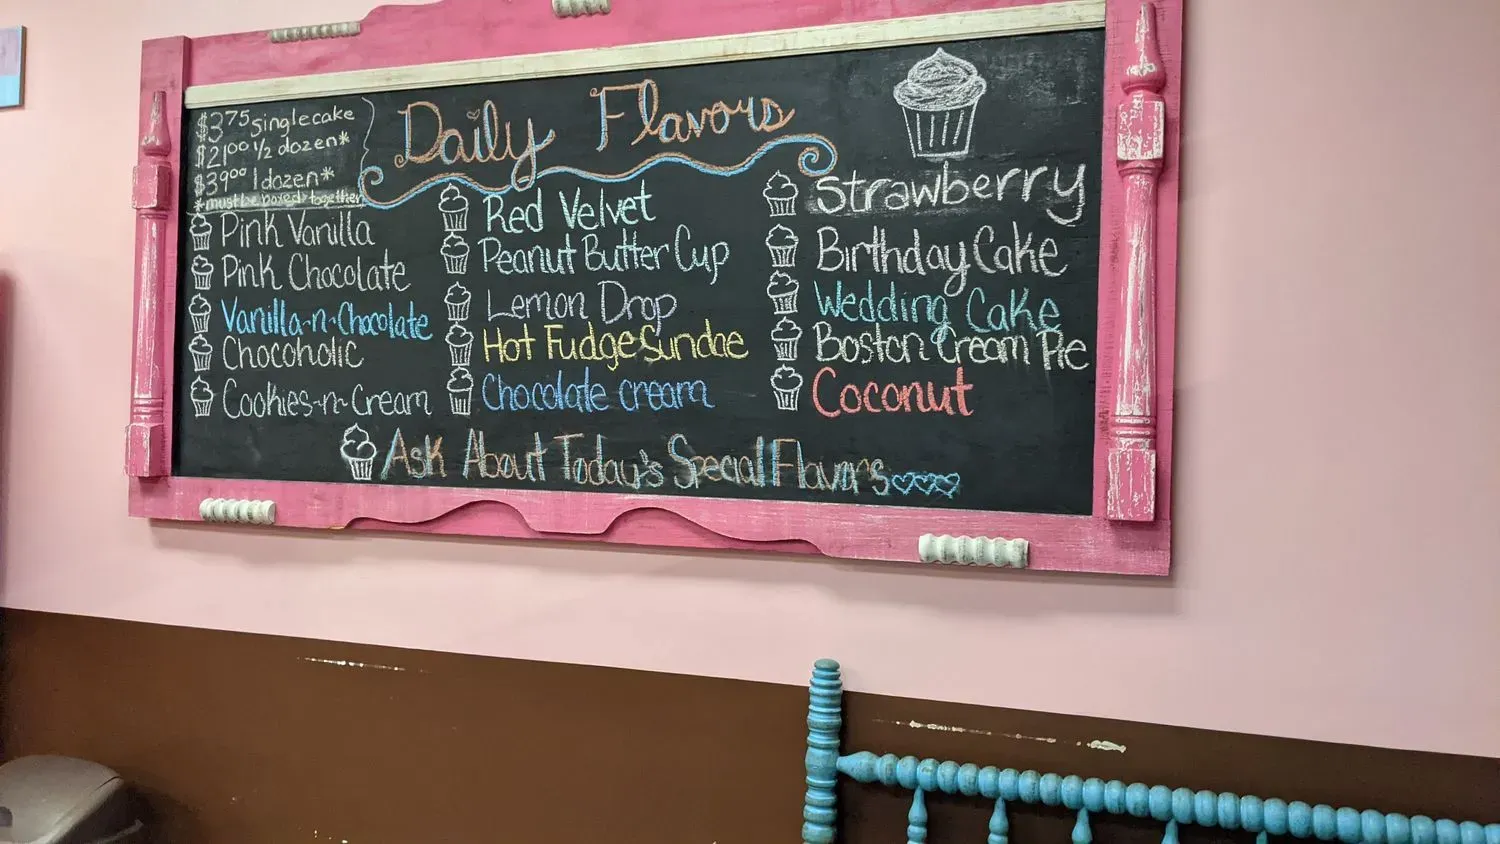 Daily Flavors
$3.75 single cake
$21.00 1/2 dozen*
$39.00 1 dozen*
*must be boxed together
Pink Vanilla
Pink Chocolate
Vanilla-n-Chocolate
Chocoholic
Cookies-n-Cream
Red Velvet
Peanut Butter Cup
Lemon Drop
Hot Fudge Sundae
Chocolate cream
Strawberry
Birthday Cake
Wedding Cake
Boston Cream Pie
Coconut
Ask About Today's Special Flavors